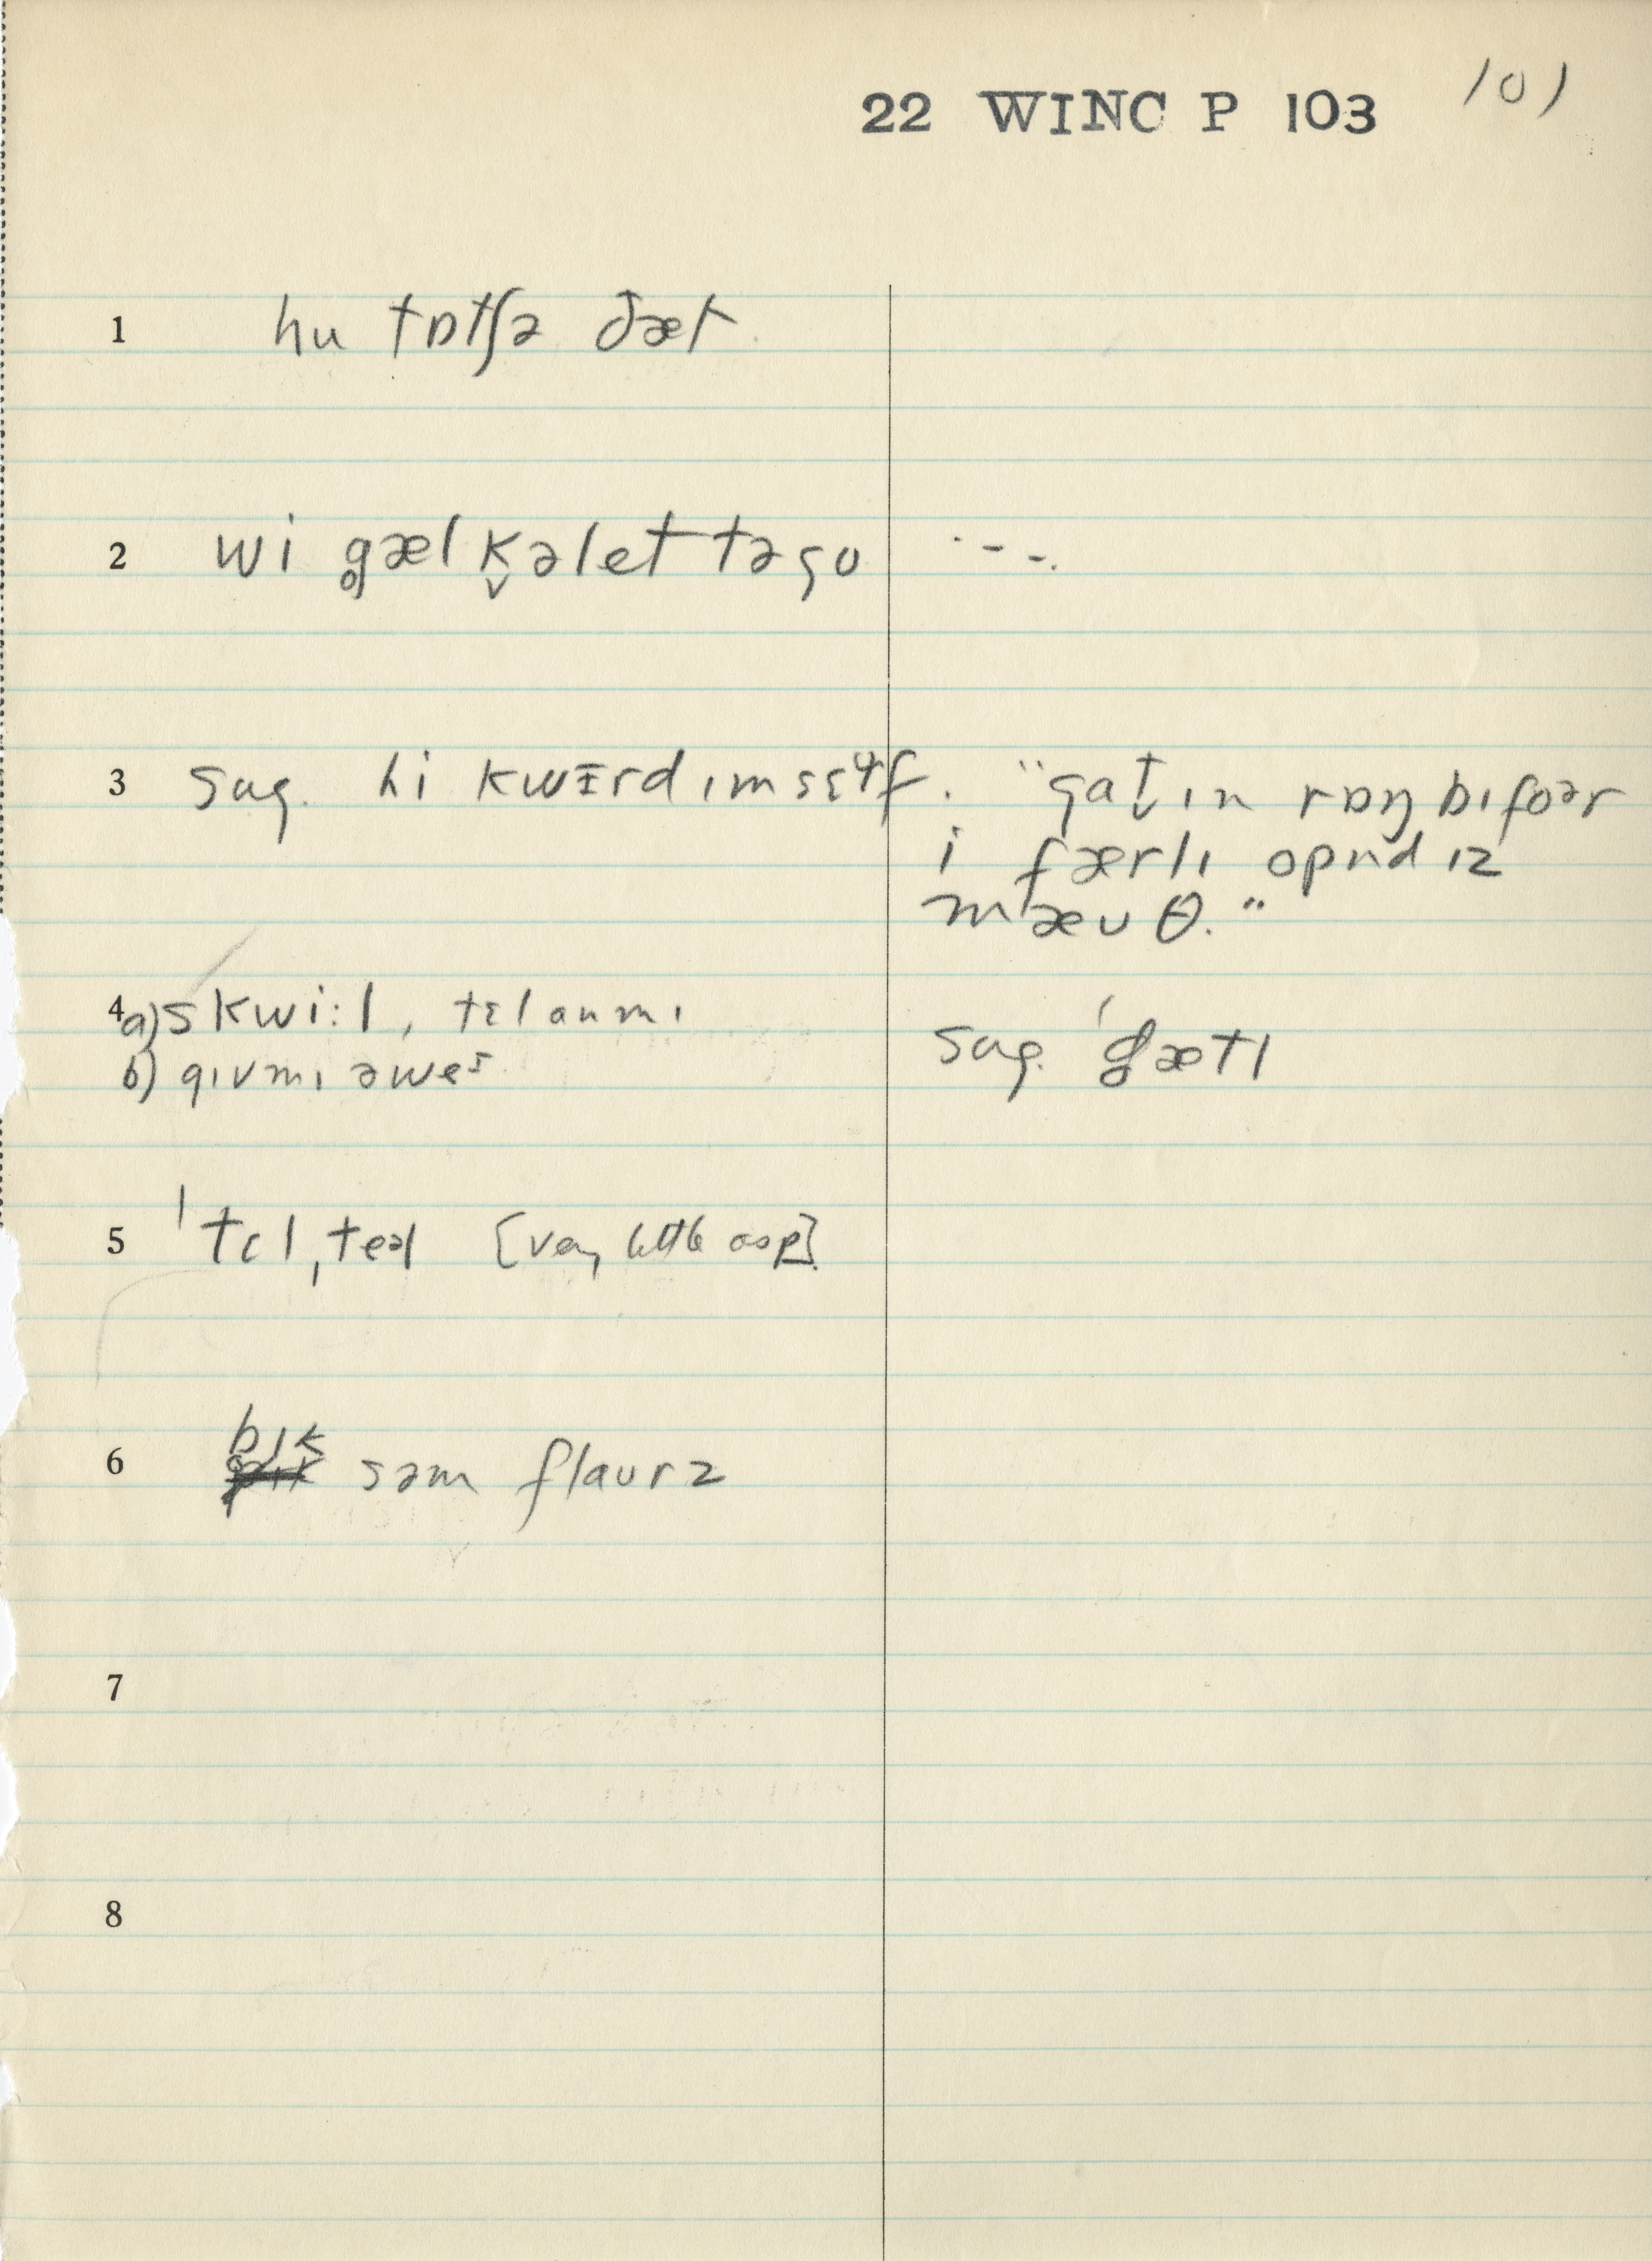 22 WINC P 103 101
1 hu tɒtʃə ðæt
2 wi g̥æl k̬əlet təgo · - - .
3 sug. hi kwɪrd ɪmsɛɤf. "gat̬ ɪn rɒŋ bɪfoər
i færlɪ opnd ɪz
mæʊθ."
4 a) skwi:l, tɛl anmɪ
b) gɪvmɪ əweɪ
sug. 'g̥ætl
5 'tɛl,teəl [very little asp].
bɪk
6 səm flaurz
7
8